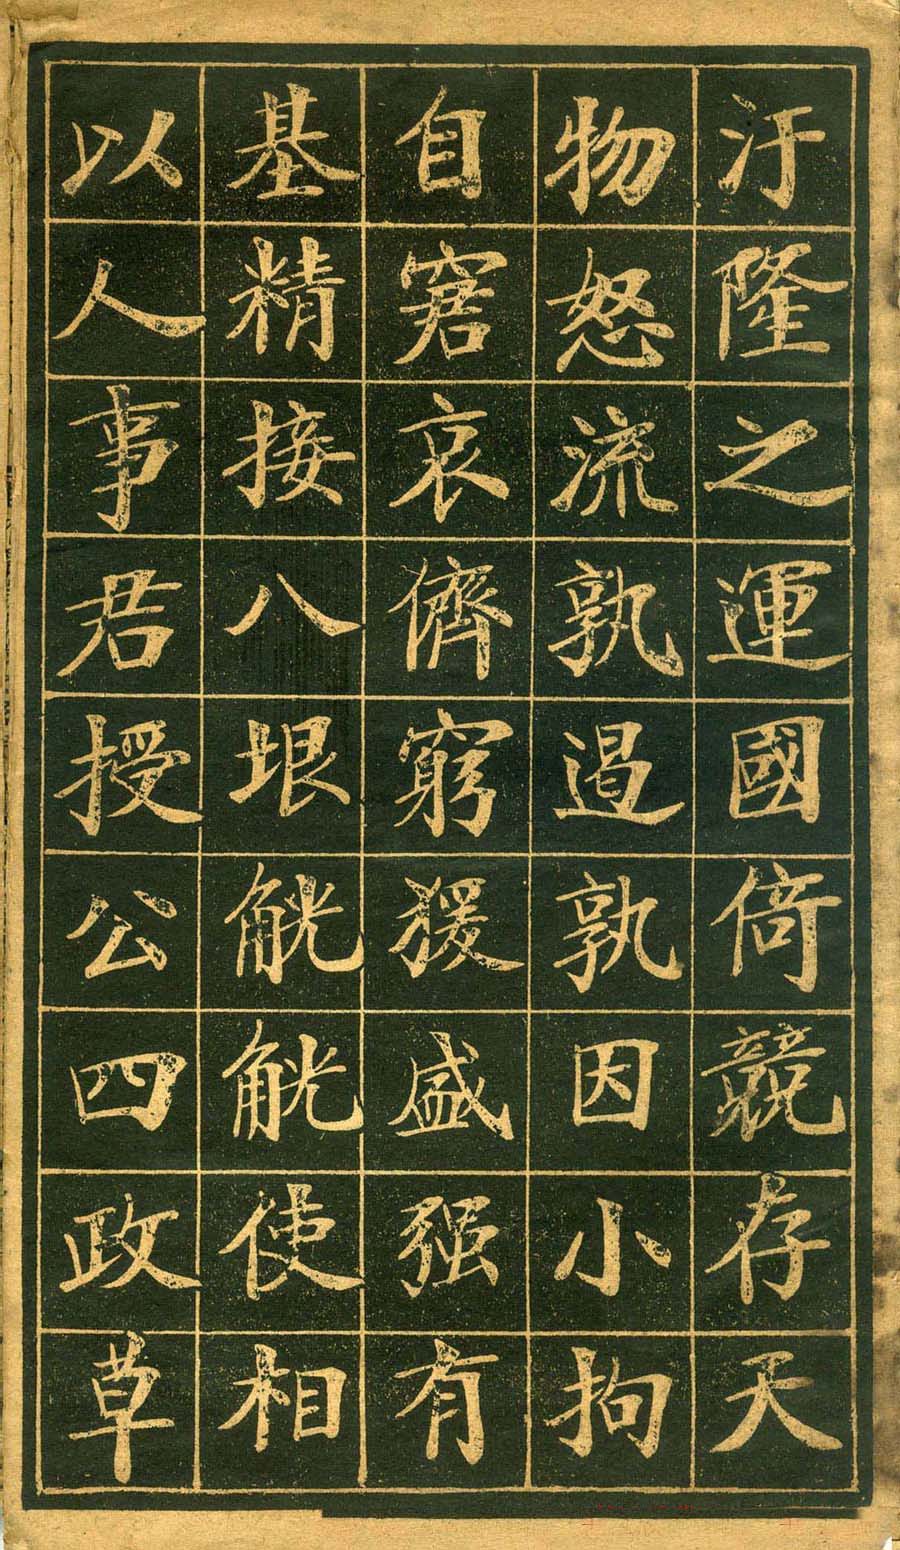 汙隆之運國倚競存天
物怒流孰遏孰因小拘
自窘哀儕窮猨盛强有
基精接八垠觥觥使相
以人事君授公四政草